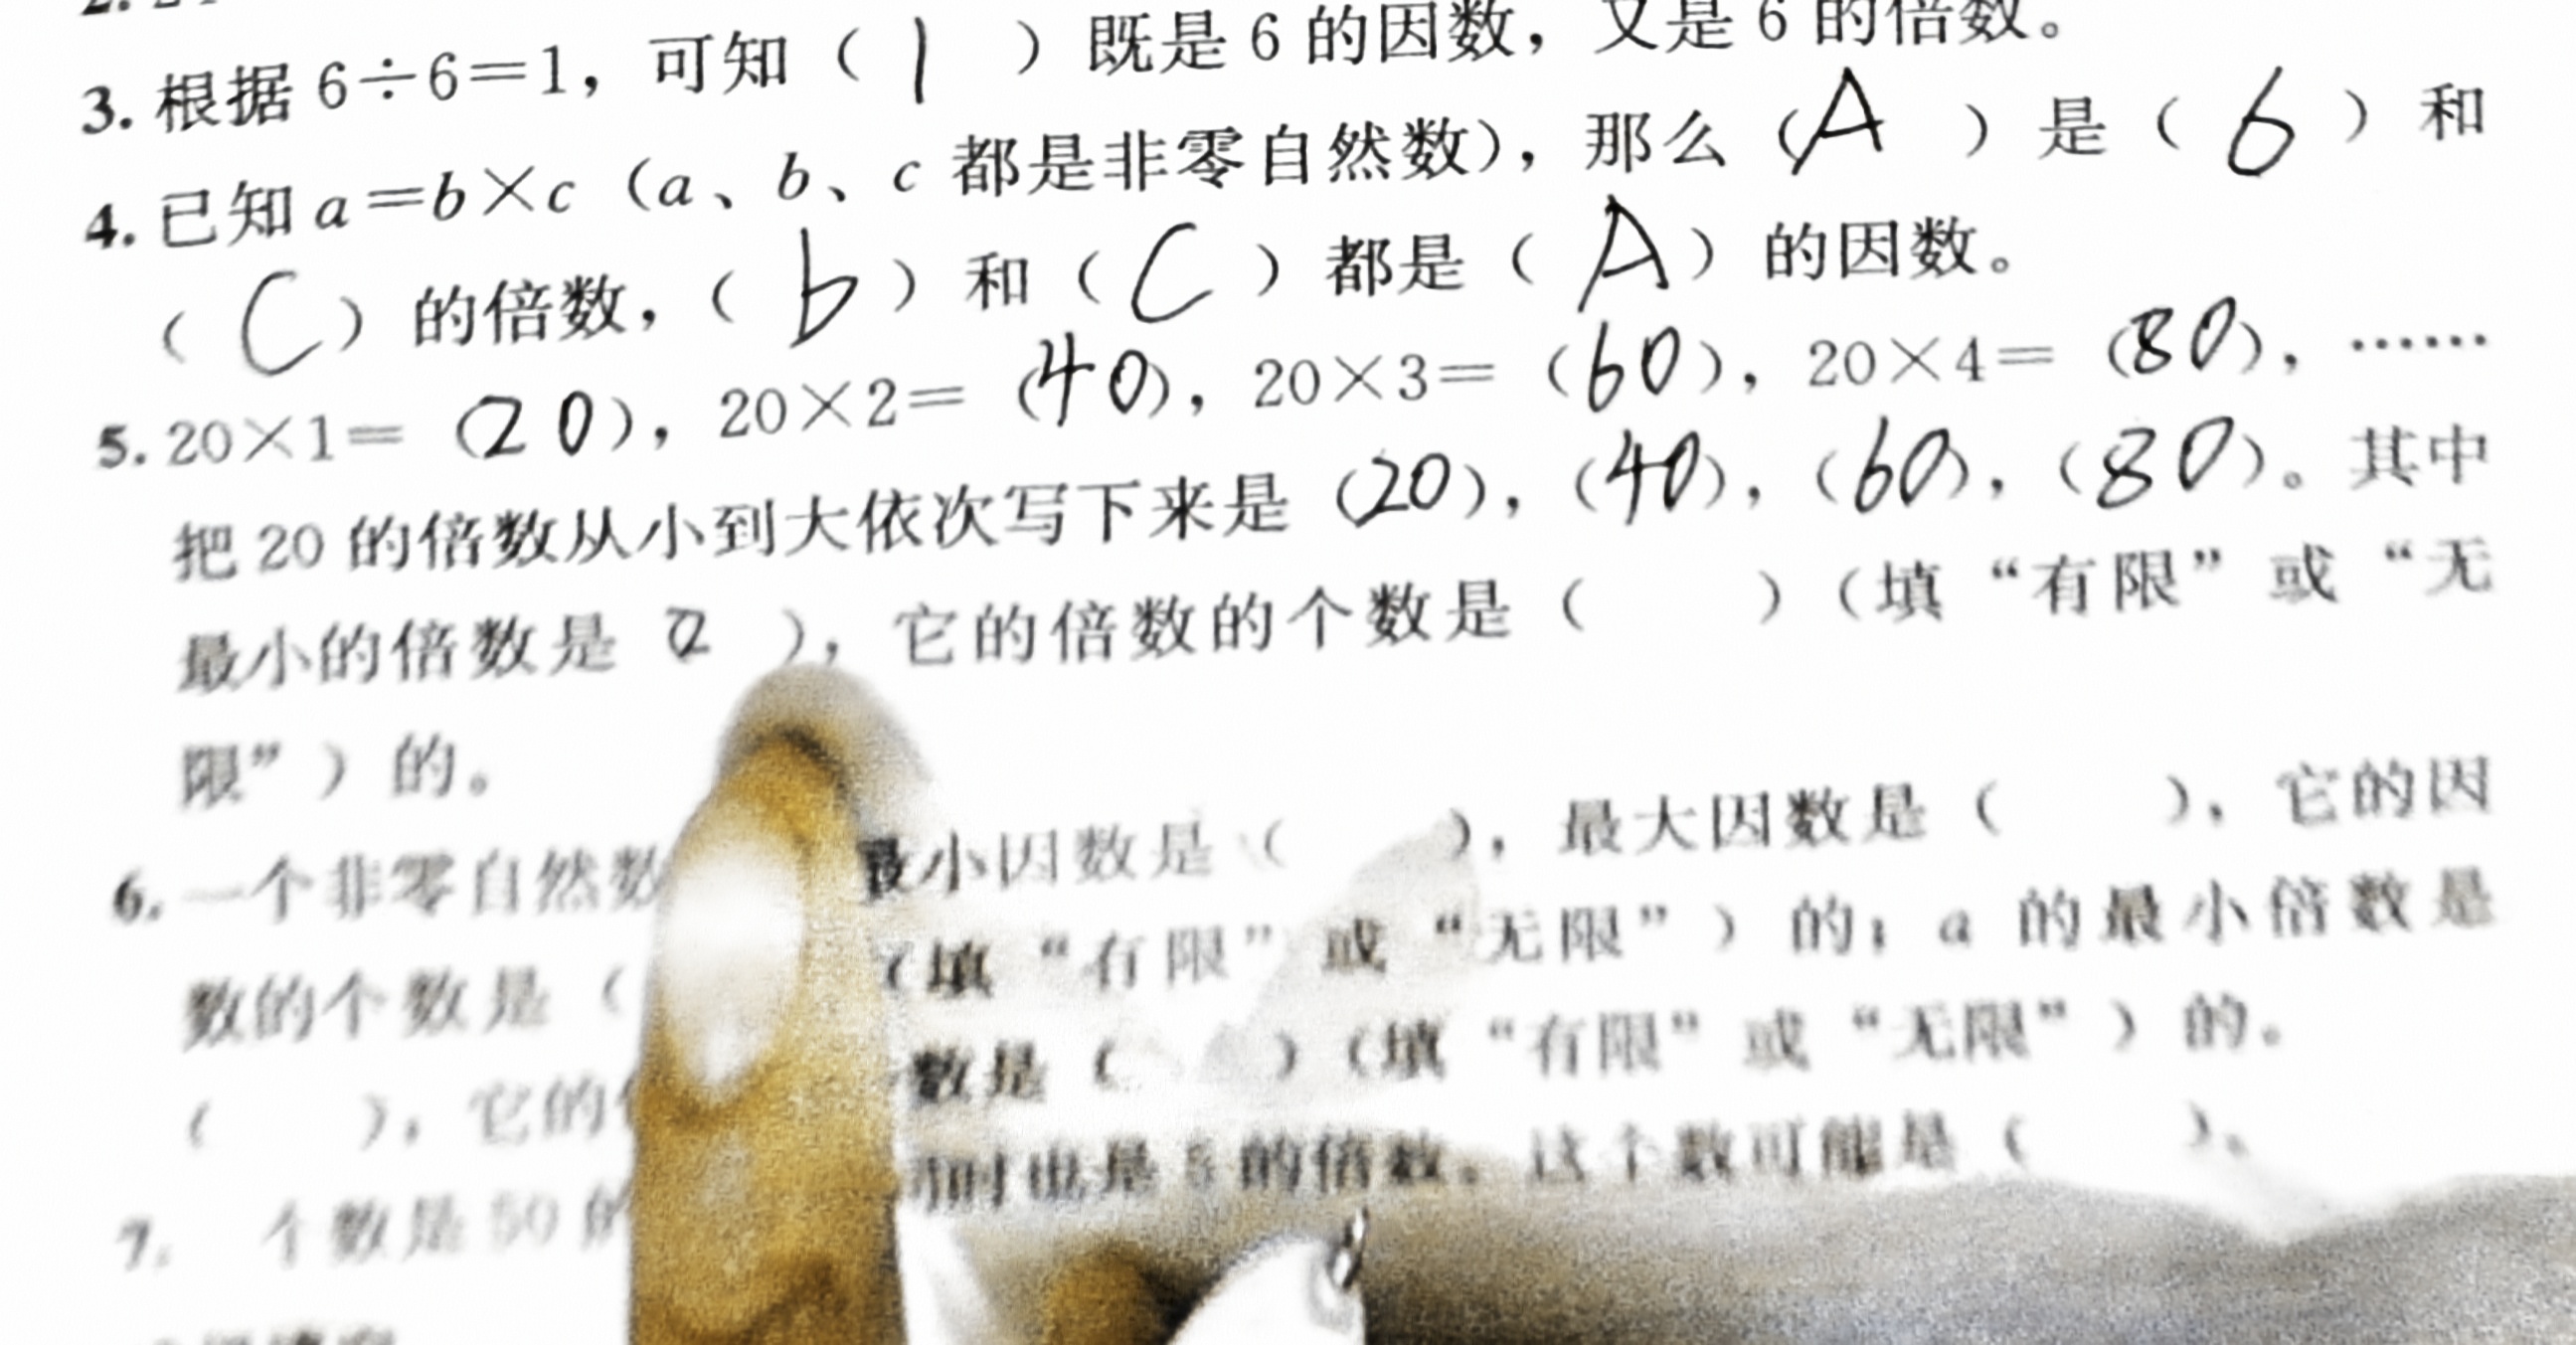 3. 根据 6÷6=1，可知（1）既是 6 的因数，又是 6 的倍数。
4. 已知 a=b×c（a、b、c 都是非零自然数），那么（A）是（6）和
（C）的倍数，（b）和（C）都是（A）的因数。
5. 20×1=（20），20×2=（40），20×3=（60），20×4=（80），……
把 20 的倍数从小到大依次写下来是（20），（40），（60），（80）。其中
最小的倍数是 ），它的倍数的个数是（ ）（填“有限”或“无
限”）的。
6. 一个非零自然数 最小因数是（ ），最大因数是（ ），它的因
数的个数是（ （填“有限”或“无限”）的；a 的最小倍数是
（ ），它的 数是（ ）（填“有限”或“无限”）的。
7. 个数是 50 的 同时也是 的倍数，这个数可能是（ ）。